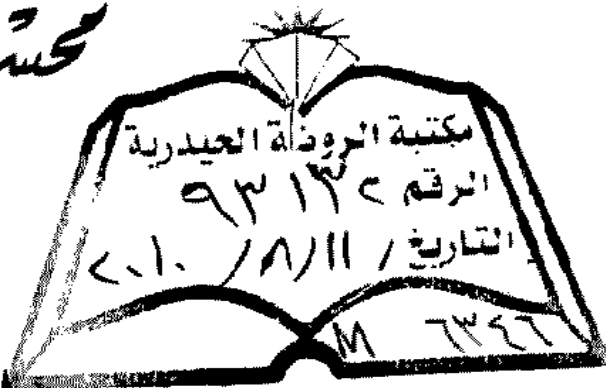 مكتبة الروضة الحيدرية
الرقم ٩٣١٣٢
التاريخ / ١١/٨/ ٢٠١٠
M ٦٣٤٦